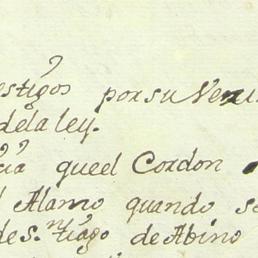 estigos por su Venu
dela ley.
cia queel Cordon
l Alamo quando se
de S.ⁿtiago de Abino